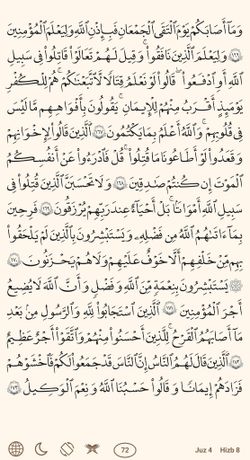 وَمَآ أَصَـٰبَكُمْ يَوْمَ ٱلْتَقَى ٱلْجَمْعَانِ فَبِإِذْنِ ٱللَّهِ وَلِيَعْلَمَ ٱلْمُؤْمِنِينَ
١٦٦ وَلِيَعْلَمَ ٱلَّذِينَ نَافَقُوا۟ ۚ وَقِيلَ لَهُمْ تَعَالَوْا۟ قَـٰتِلُوا۟ فِى سَبِيلِ
ٱللَّهِ أَوِ ٱدْفَعُوا۟ ۖ قَالُوا۟ لَوْ نَعْلَمُ قِتَالًا لَّٱتَّبَعْنَـٰكُمْ ۗ هُمْ لِلْكُفْرِ
يَوْمَئِذٍ أَقْرَبُ مِنْهُمْ لِلْإِيمَـٰنِ ۚ يَقُولُونَ بِأَفْوَٰهِهِم مَّا لَيْسَ
فِى قُلُوبِهِمْ ۗ وَٱللَّهُ أَعْلَمُ بِمَا يَكْتُمُونَ ١٦٧ ٱلَّذِينَ قَالُوا۟ لِإِخْوَٰنِهِمْ
وَقَعَدُوا۟ لَوْ أَطَاعُونَا مَا قُتِلُوا۟ ۗ قُلْ فَٱدْرَءُوا۟ عَنْ أَنفُسِكُمُ
ٱلْمَوْتَ إِن كُنتُمْ صَـٰدِقِينَ ١٦٨ وَلَا تَحْسَبَنَّ ٱلَّذِينَ قُتِلُوا۟ فِى
سَبِيلِ ٱللَّهِ أَمْوَٰتًۢا ۚ بَلْ أَحْيَآءٌ عِندَ رَبِّهِمْ يُرْزَقُونَ ١٦٩ فَرِحِينَ
بِمَآ ءَاتَىٰهُمُ ٱللَّهُ مِن فَضْلِهِۦ وَيَسْتَبْشِرُونَ بِٱلَّذِينَ لَمْ يَلْحَقُوا۟
بِهِم مِّنْ خَلْفِهِمْ أَلَّا خَوْفٌ عَلَيْهِمْ وَلَا هُمْ يَحْزَنُونَ ١٧٠
۞ يَسْتَبْشِرُونَ بِنِعْمَةٍ مِّنَ ٱللَّهِ وَفَضْلٍ وَأَنَّ ٱللَّهَ لَا يُضِيعُ
أَجْرَ ٱلْمُؤْمِنِينَ ١٧١ ٱلَّذِينَ ٱسْتَجَابُوا۟ لِلَّهِ وَٱلرَّسُولِ مِنۢ بَعْدِ
مَآ أَصَابَهُمُ ٱلْقَرْحُ ۚ لِلَّذِينَ أَحْسَنُوا۟ مِنْهُمْ وَٱتَّقَوْا۟ أَجْرٌ عَظِيمٌ
١٧٢ ٱلَّذِينَ قَالَ لَهُمُ ٱلنَّاسُ إِنَّ ٱلنَّاسَ قَدْ جَمَعُوا۟ لَكُمْ فَٱخْشَوْهُمْ
فَزَادَهُمْ إِيمَـٰنًا وَقَالُوا۟ حَسْبُنَا ٱللَّهُ وَنِعْمَ ٱلْوَكِيلُ ١٧٣
72 Juz 4 Hizb 8